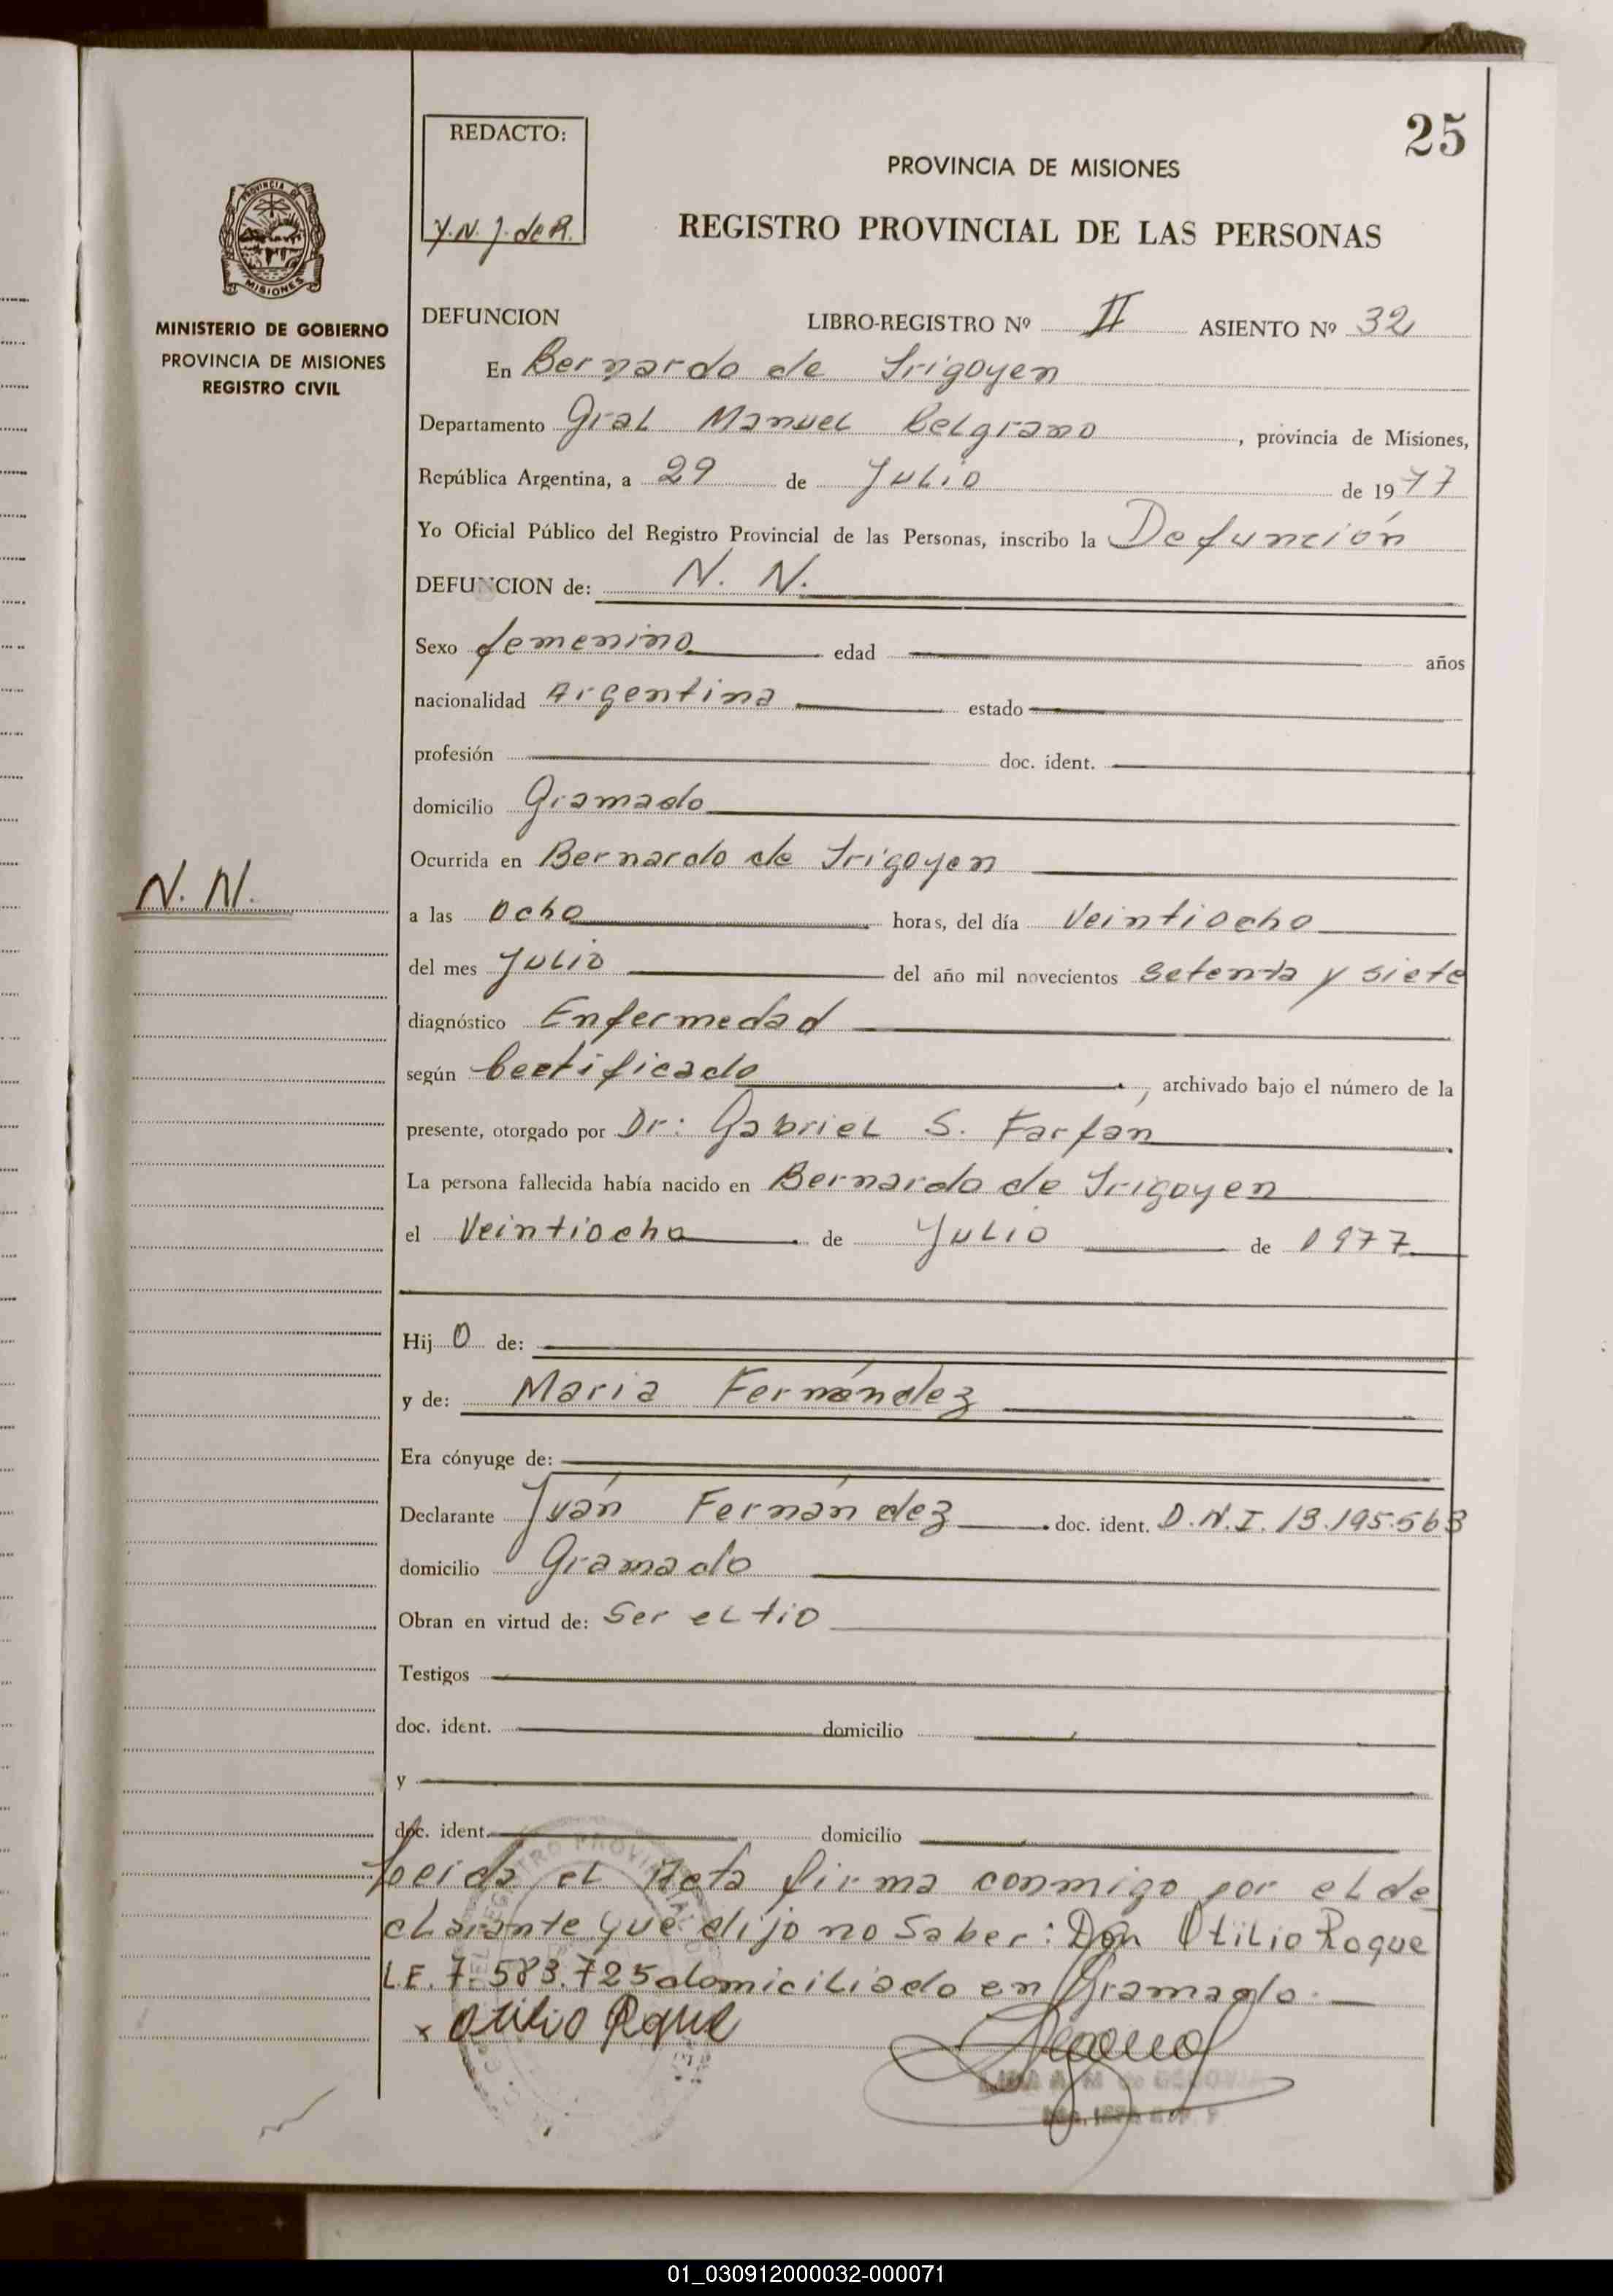 25
REDACTO:
Y.N. J. de R.
PROVINCIA DE MISIONES
REGISTRO PROVINCIAL DE LAS PERSONAS
PROVINCIA DE
MISIONES
MINISTERIO DE GOBIERNO
PROVINCIA DE MISIONES
REGISTRO CIVIL
DEFUNCION LIBRO-REGISTRO Nº II ASIENTO Nº 32
En Bernardo de Irigoyen
Departamento Gral Manuel Belgrano, provincia de Misiones,
República Argentina, a 29 de Julio de 1977
Yo Oficial Público del Registro Provincial de las Personas, inscribo la Defunción
DEFUNCION de: N. N.
Sexo femenino edad años
nacionalidad Argentina estado
profesión doc. ident.
domicilio Gramado
Ocurrida en Bernardo de Irigoyen
N. N.
a las ocho horas, del día Veintiocho
del mes Julio del año mil novecientos setenta y siete
diagnóstico Enfermedad
según Certificado, archivado bajo el número de la
presente, otorgado por Dr: Gabriel S. Farfan
La persona fallecida había nacido en Bernardo de Irigoyen
el Veintiocho de Julio de 1977
Hij O de:
y de: Maria Fernández
Era cónyuge de:
Declarante Juán Fernández doc. ident. D.N.I. 13.195.563
domicilio Gramado
Obran en virtud de: Ser el tio
Testigos
doc. ident. domicilio
y
doc. ident. domicilio
Leida el Acta firma conmigo por el de
clarante que dijo no saber: Don Otilio Roque
L.E. 7.583.725 domiciliado en Gramado.
x Otilio Roque
01_030912000032-000071